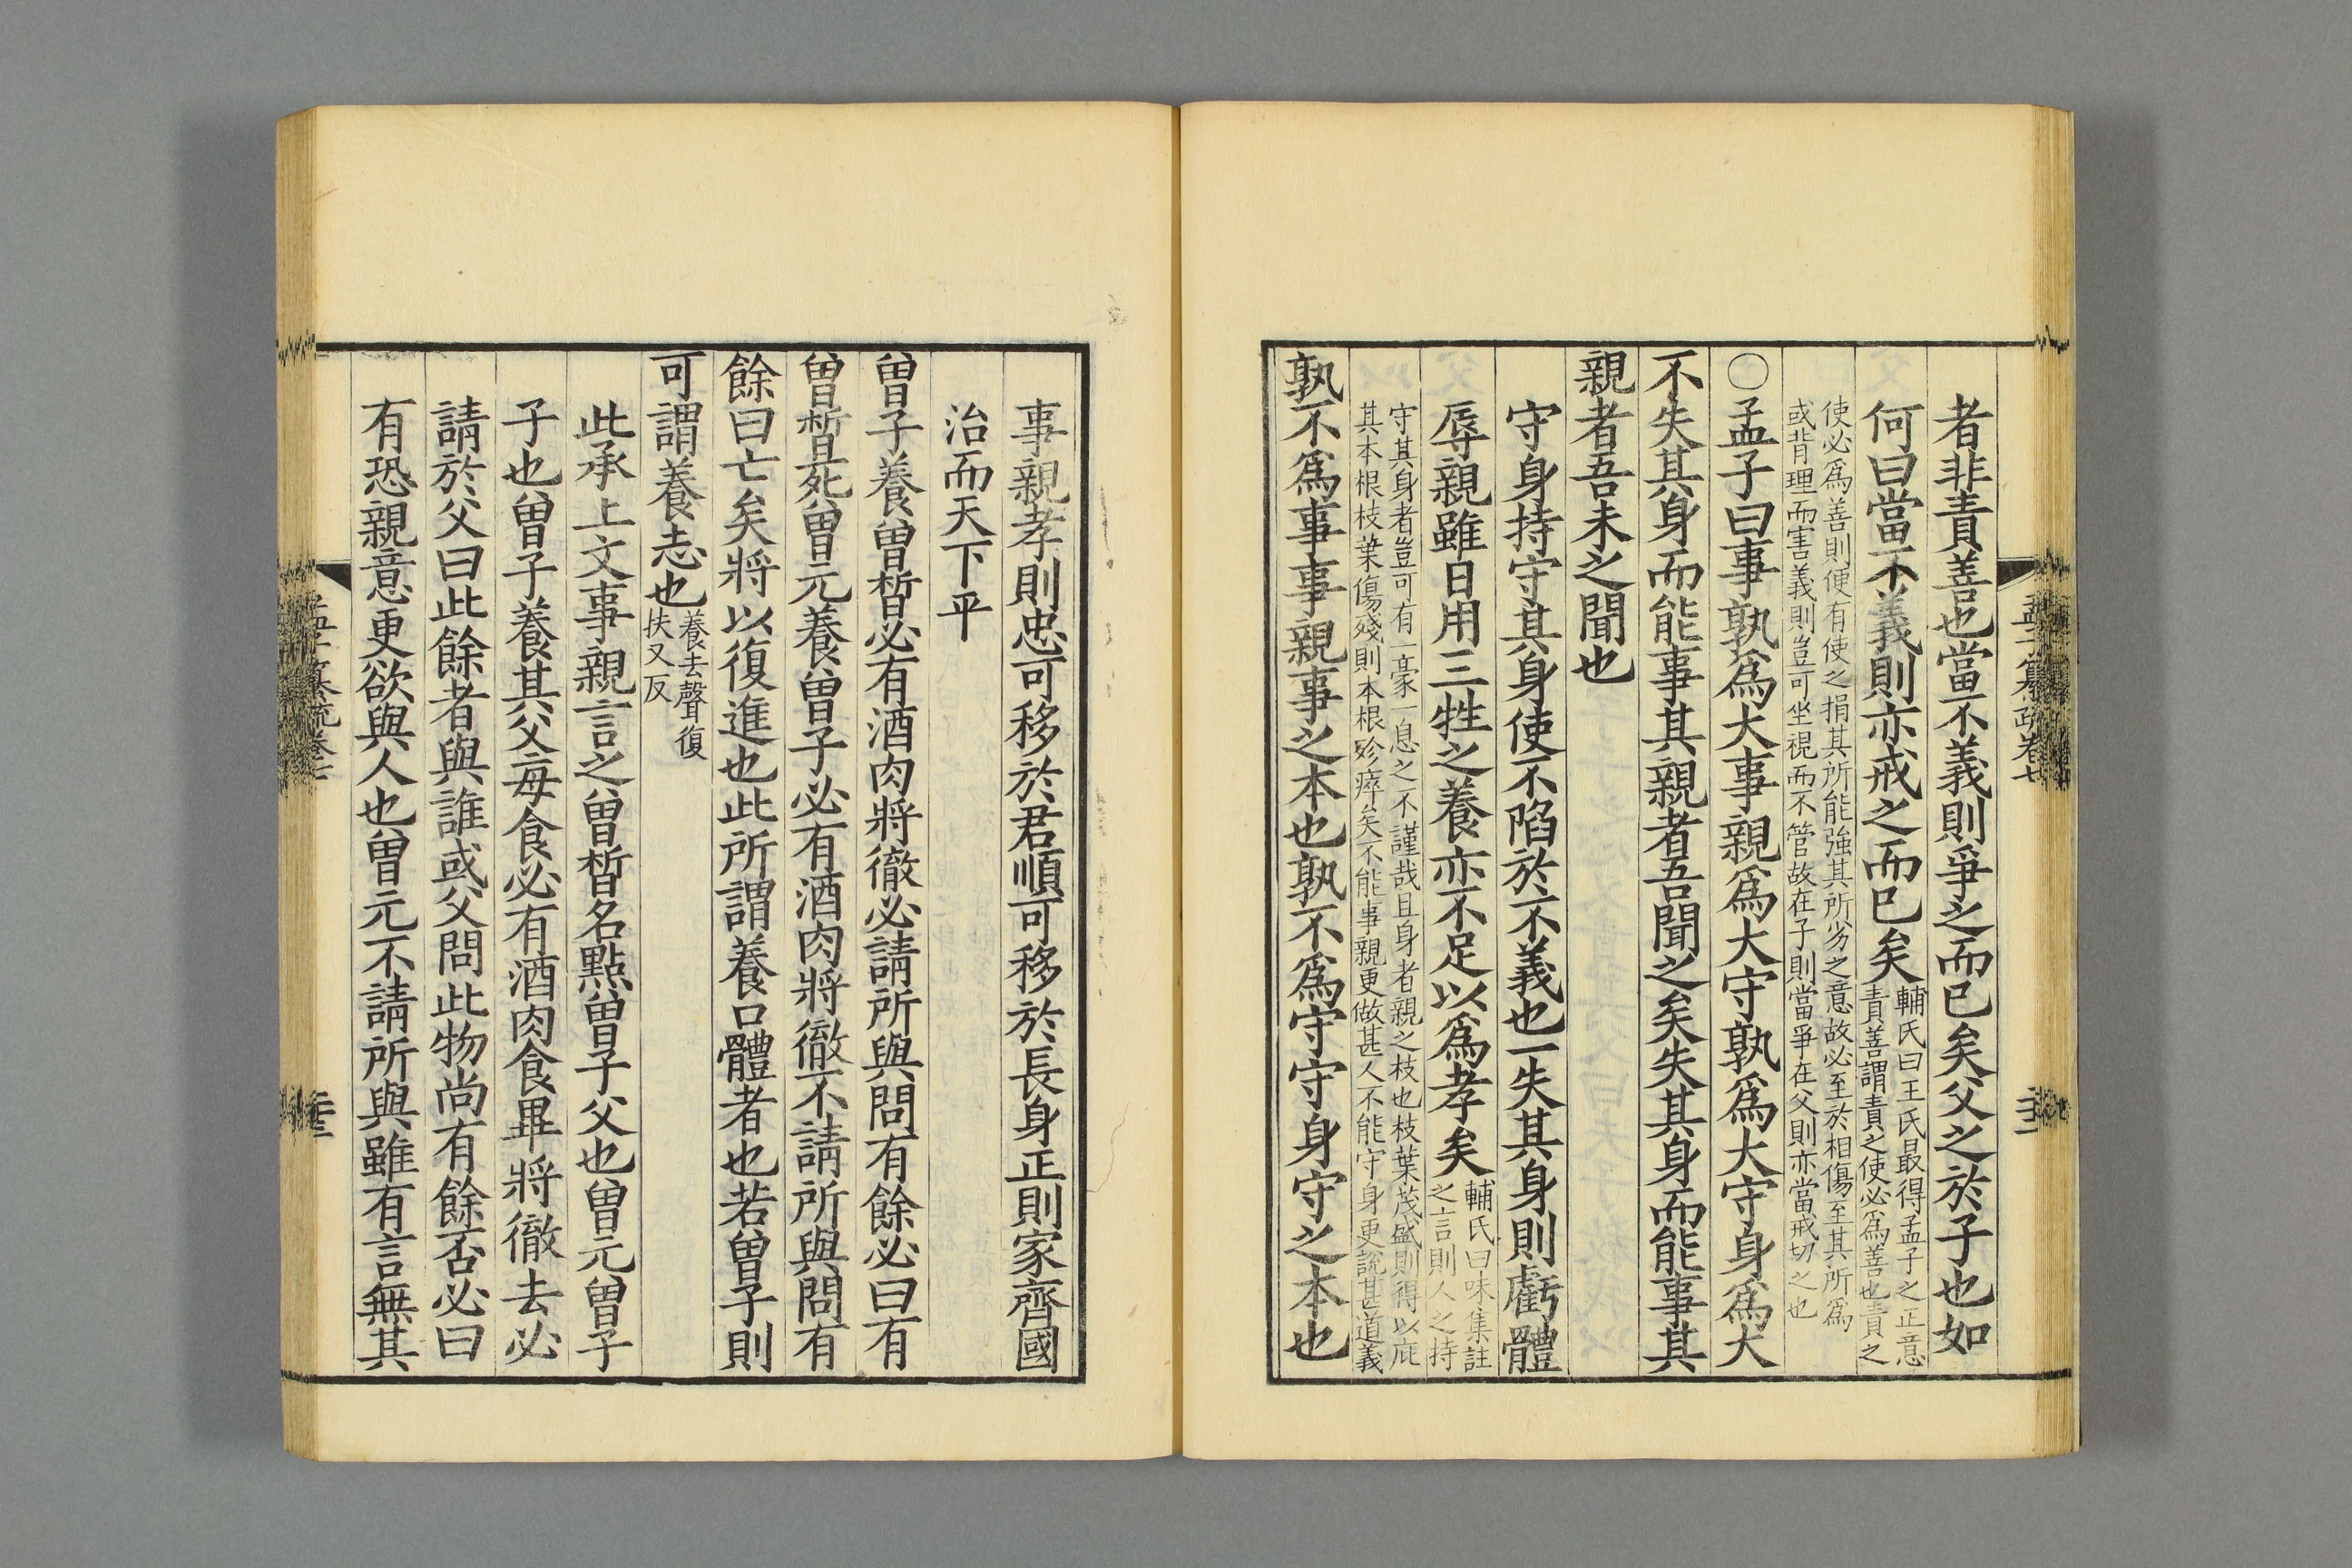 者非責善也當不義則爭之而已矣父之於子也如
何曰當不義則亦戒之而已矣
輔氏曰王氏最得孟子之正意
責善謂責之使必爲善也責之
使必爲善則便有使之捐其所能強其所劣之意故必至於相傷至其所爲
或背理而害義則豈可坐視而不管故在子則當爭在父則亦當戒切之也
○孟子曰事孰爲大事親爲大守孰爲大守身爲大
不失其身而能事其親者吾聞之矣失其身而能事其
親者吾未之聞也
守身持守其身使不陷於不義也一失其身則虧體
辱親雖日用三牲之養亦不足以爲孝矣
輔氏曰味集註
之言則人之持
守其身者豈可有一豪一息之不謹哉且身者親之枝也枝葉茂盛則得以庇
其本根枝葉傷殘則本根殄瘁矣不能事親更做甚人不能守身更說甚道義
孰不爲事事親事之本也孰不爲守守身守之本也
事親孝則忠可移於君順可移於長身正則家齊國
治而天下平
曾子養曾晳必有酒肉將徹必請所與問有餘必曰有
曾晳死曾元養曾子必有酒肉將徹不請所與問有
餘曰亡矣將以復進也此所謂養口體者也若曾子則
可謂養志也
養去聲復
扶又反
此承上文事親言之曾晳名點曾子父也曾元曾子
子也曾子養其父每食必有酒肉食畢將徹去必
請於父曰此餘者與誰或父問此物尚有餘否必曰
有恐親意更欲與人也曾元不請所與雖有言無其